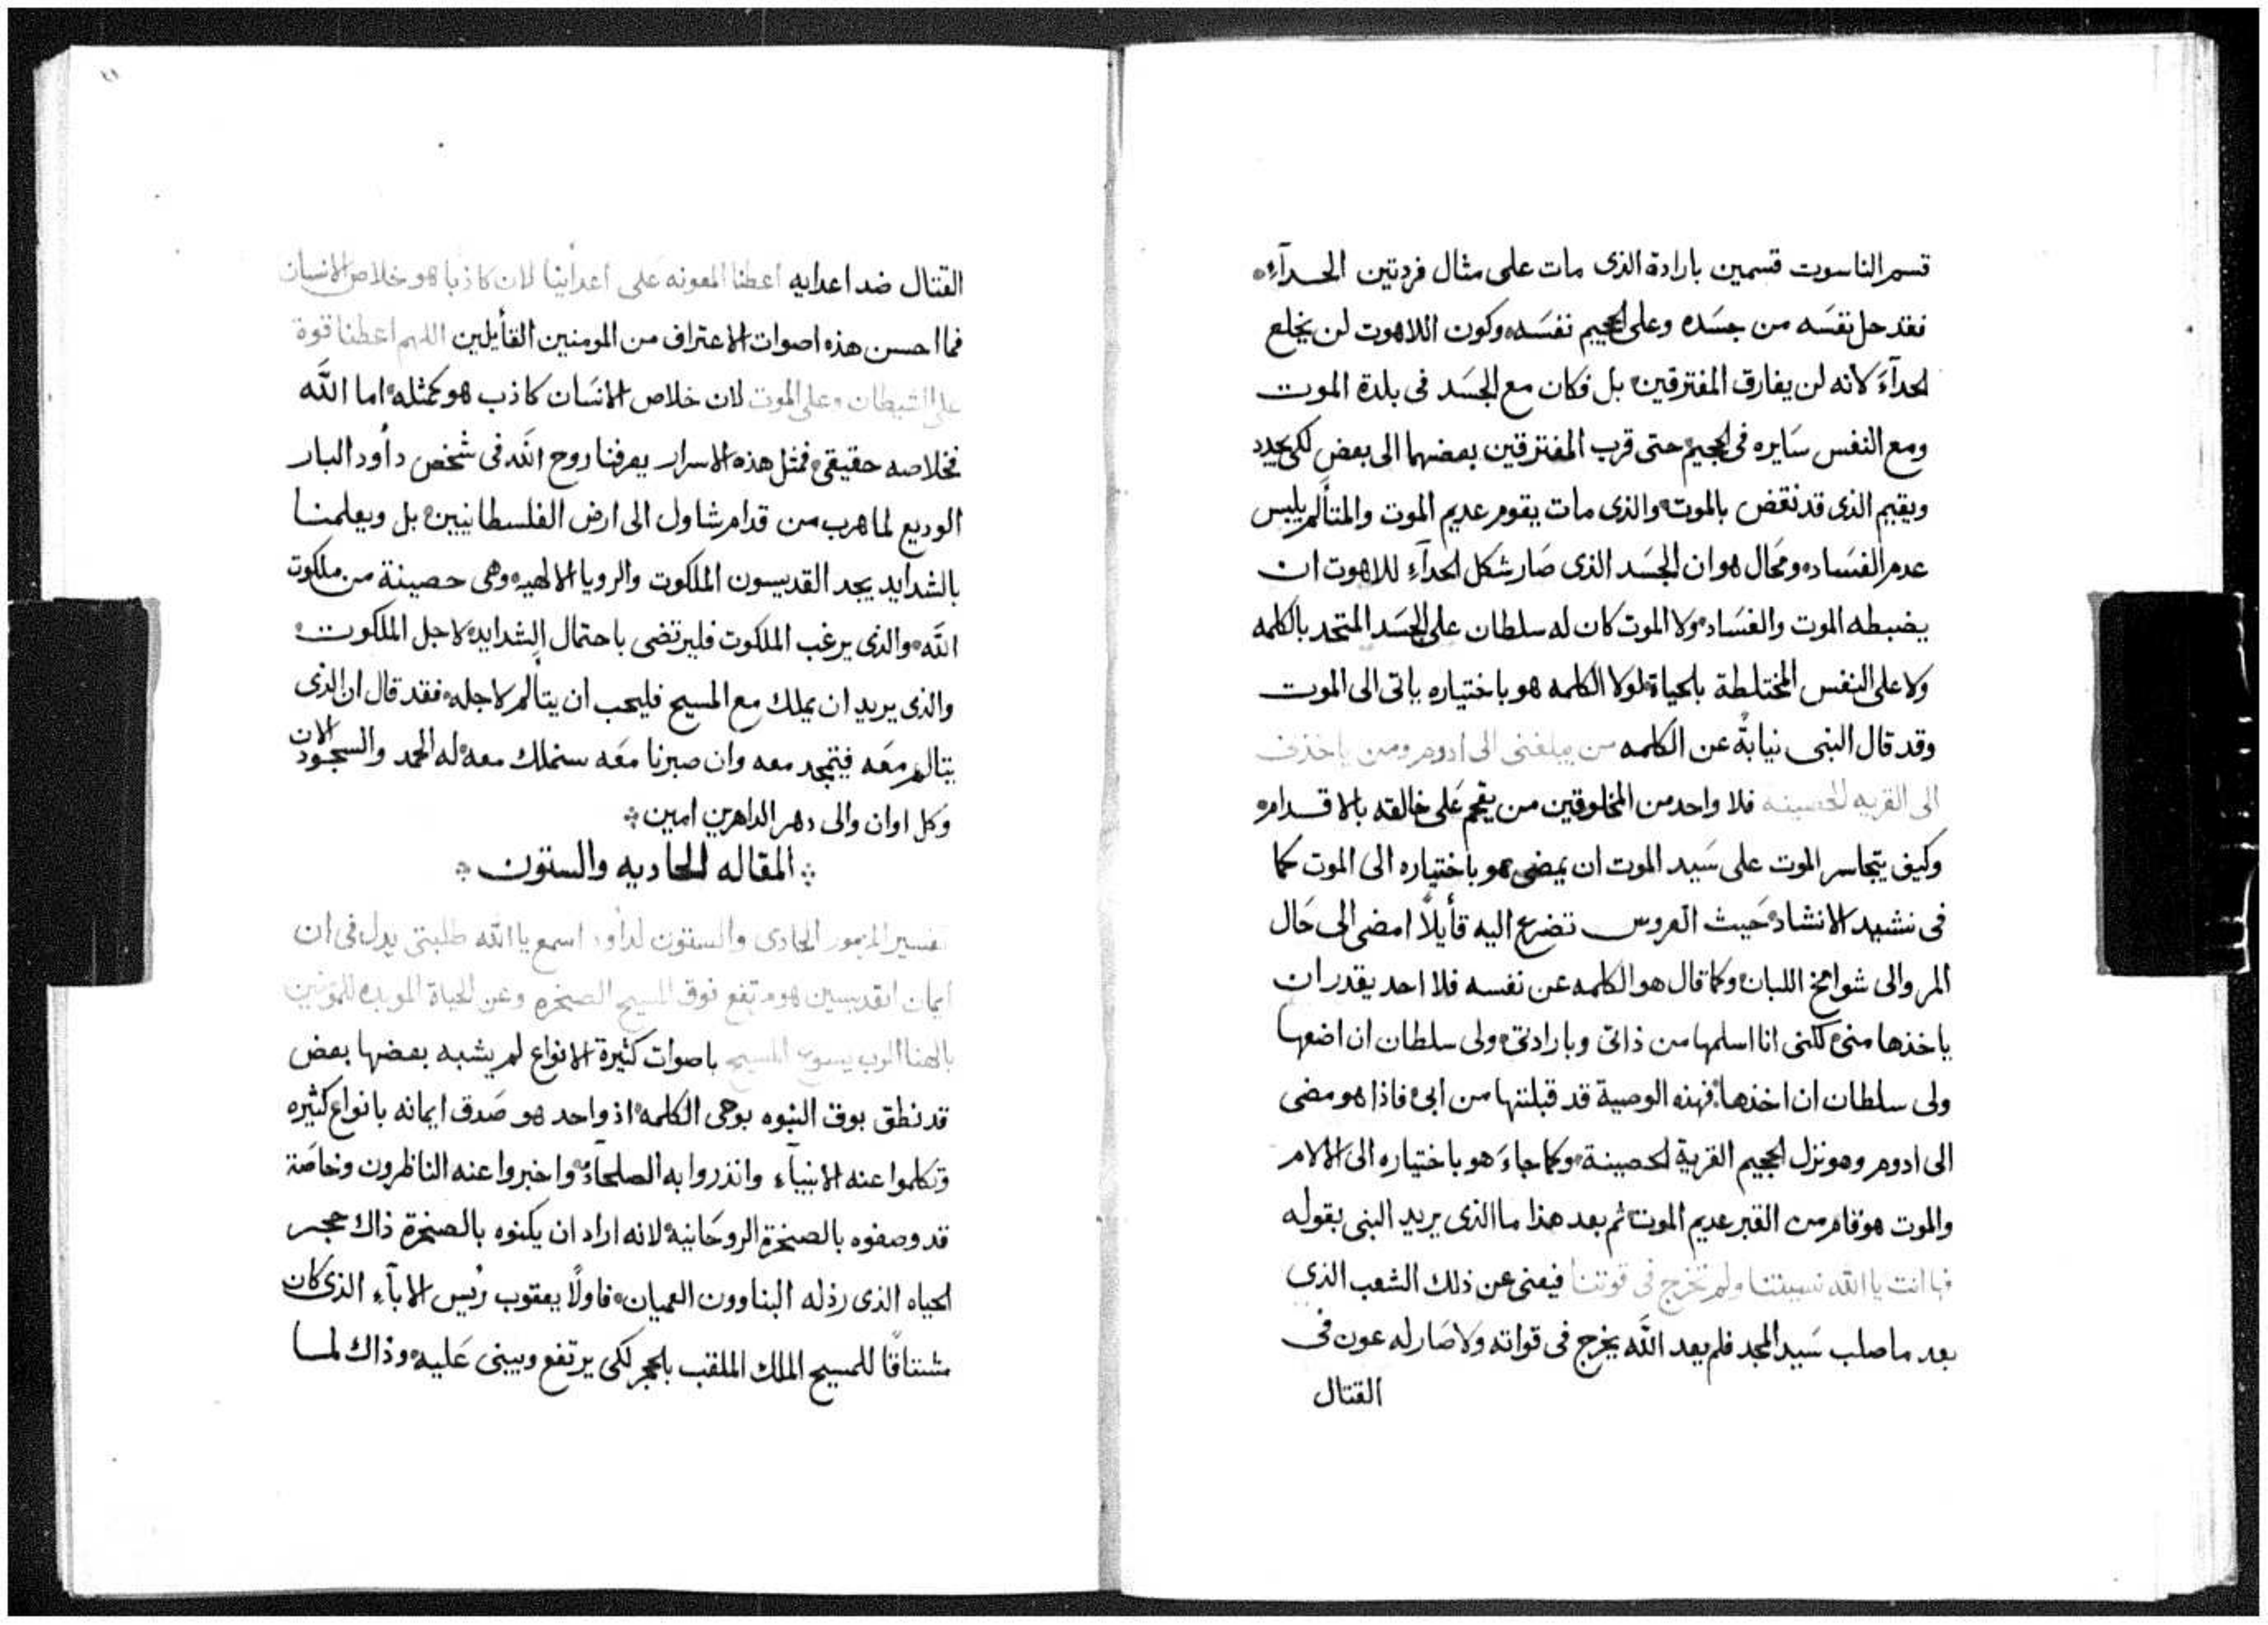 قسم الناسوت قسمين بارادة الذى مات على مثال فردتين الحدآءِ
فقد حل نفسَه من جسَده وعلى الجحيم نفسَده وكون اللاهوت لن يخلع
لحدآءَ كانه لن يفارق المفترقين بل وكان مع الجسَد فى بلدة الموت
ومع النفس سَايره فى الجحيم حتى قرب المفترقين بعضهما الى بعض لكى يجدد
ويقيم الذى قد نقض بالموت والذى مات يقوم عديم الموت والمتألم يلبس
عدم الفسَاد ومحَال هو ان الجسَد الذى صَار شكل الحدآءِ للاهوت ان
يضبطه الموت والفسَاد ولا الموت كان له سلطان على الجسَد المتحد بالكلمه
ولا على النفس المختلطة بالحياة لولا الكلمه هو باختياره ياتى الى الموت
وقد قال النبى نيابةً عن الكلمه من يبلغنى الى ادوم ومن ياخذنى
الى القريه الحصينه فلا واحد من المخلوقين من يقحم عَلى خالقه بالاقدام
وكيف يتجاسر الموت على سَيد الموت ان يمضى هو باختياره الى الموت كما
فى نشيد الانشاد حَيث العروس تضرع اليه قأيلاً امضى الى حَال
المر والى شوامخ اللبان وكما قال هو الكلمه عن نفسه فلا احد يقدر ان
ياخذها منى لكننى انا اسلمها من ذاتى وبارادتى ولى سلطان ان اضعها
ولى سلطان ان اخذها فهذه الوصية قد قبلتها من ابى فاذا هو مضى
الى ادوم وهو نزل الجحيم القرية الحصينة وكما جاءَ هو باختياره الى الالام
والموت هو قام من القبر عديم الموت ثم بعد هذا ما الذى يريد النبى بقوله
فها انت يا الله نسيتنا ولم تخرج فى قوتنا فيعنى عن ذلك الشعب الذى
بعد ما صلب سَيد المجد فلم يعد الله يخرج فى قواته ولا صَار له عون فى
القتال
القتال ضد اعدايه اعطنا المعونه عَلى اعدأينا لان كاذبا هو خلاص الانسان
فما احسن هذه اصوات الاعتراف من المومنين القأيلين اللهم اعطنا قوة
على الشيطان وعلى الموت لان خلاص الانسَان كاذب هو كمثله اما الله
فخلاصه حقيقى فمثل هذه الاسرار يعرفنا روح الله فى شخص دأود البار
الوديع لما هرب من قدام شاول الى ارض الفلسطانيين بل ويعلمنا
بالشدأيد يجد القديسون الملكوت والرويا الالهيه وهى حصينة من ملكوت
الله والذى يرغب الملكوت فليرتضى باحتمال الشدايد لاجل الملكوت
والذى يريد ان يملك مع المسيح فليحب ان يتألم لاجله فقد قال ان الذى
يتالم معَه فيتمجد معه وان صبرنا معَه سنملك معه له الحمد والسجود الان
وكل اوان والى دهر الداهرين امين
المقاله الحاديه والستون
تفسير المزمور الحادى والستون لدأود اسمع يا الله طلبتى يدل فى ان
ايمان القديسين هو مرتفع فوق المسيح الصخره وعن الحياة الموبده للمومنين
بالهنا الرب يسوع المسيح باصوات كثيرة الانواع لم يشبه بعضها بعض
قد نطق بوق النبوه بوحى الكلمه اذ واحد هو صَدق ايمانه بانواع كثيره
وتكلموا عنه الانبيآء وانذروا به الصلحآء واخبروا عنه الناظرون وخاصَة
قد وصفوه بالصخرة الروحَانيه لانه اراد ان يكنوه بالصخرة ذاك حجر
الحياه الذى رذله البناوون العميان فاولاً يعقوب رئيس الابآء الذى كان
مشتاقًا للمسيح الملك الملقب بالحجر لكى يرتفع ويبنى عَليه وذاك لما